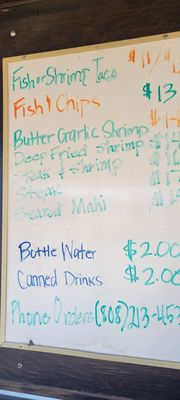 Fish or Shrimp Taco $11/$1
Fish & Chips $13
Butter Garlic Shrimp $14
Deep Fried Shrimp
Steak & Shrimp
Steak
Seared Mahi
Bottle Water $2.00
Canned Drinks $2.00
Phone Orders (808) 213-453